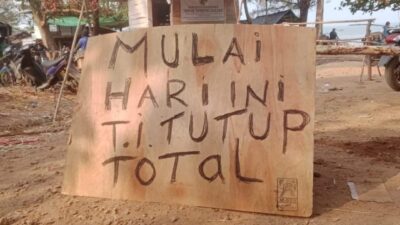 MULAI
HARI INI
T.I. TUTUP
TOTAL